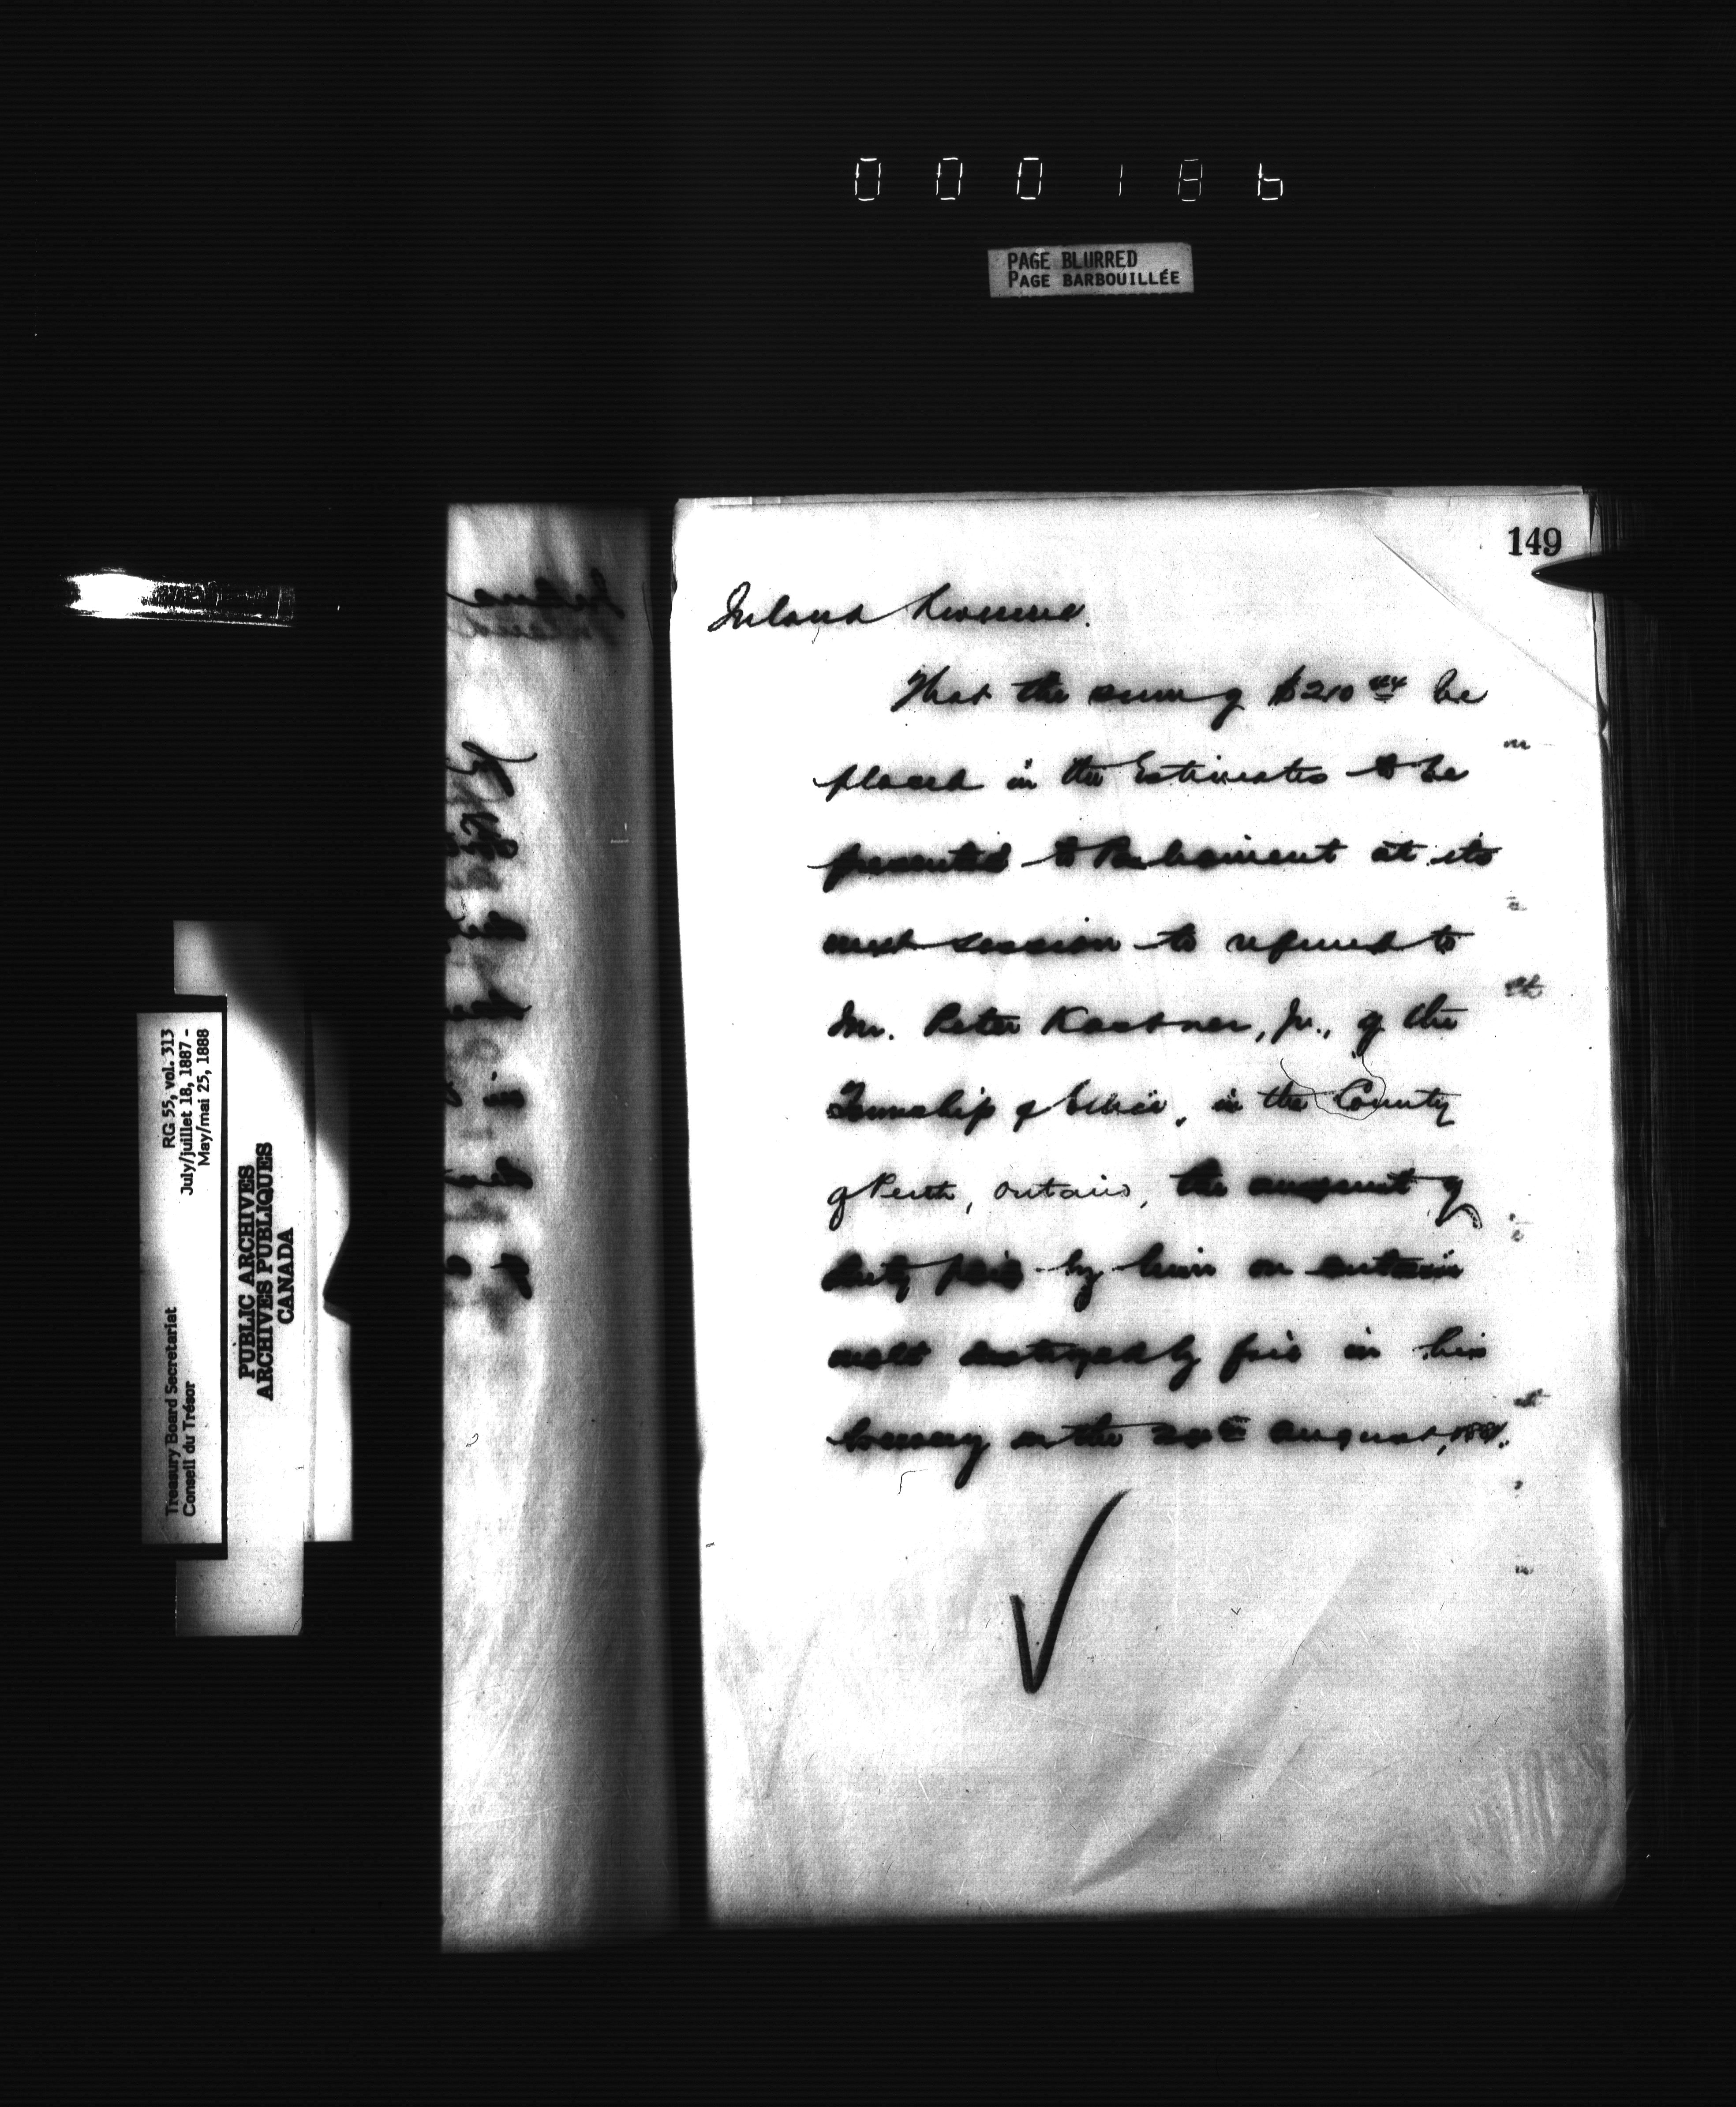 000186
PAGE BLURRED
PAGE BARBOUILLÉE
149
Inland Revenue.
That the sum of $210 44 be
placed in the Estimates to be
presented to Parliament at its
next session to refund to
Mr. Peter Kastner, Jr., of the
Township of Ellice, in the County
of Perth, Ontario, the amount of
duty paid by him on certain
malt destroyed by fire in his
brewery on the August,
RG 55, vol. 313
July/juillet 18, 1887 -
May/mai 25, 1888
Treasury Board Secretariat
Conseil du Trésor
PUBLIC ARCHIVES
ARCHIVES PUBLIQUES
CANADA